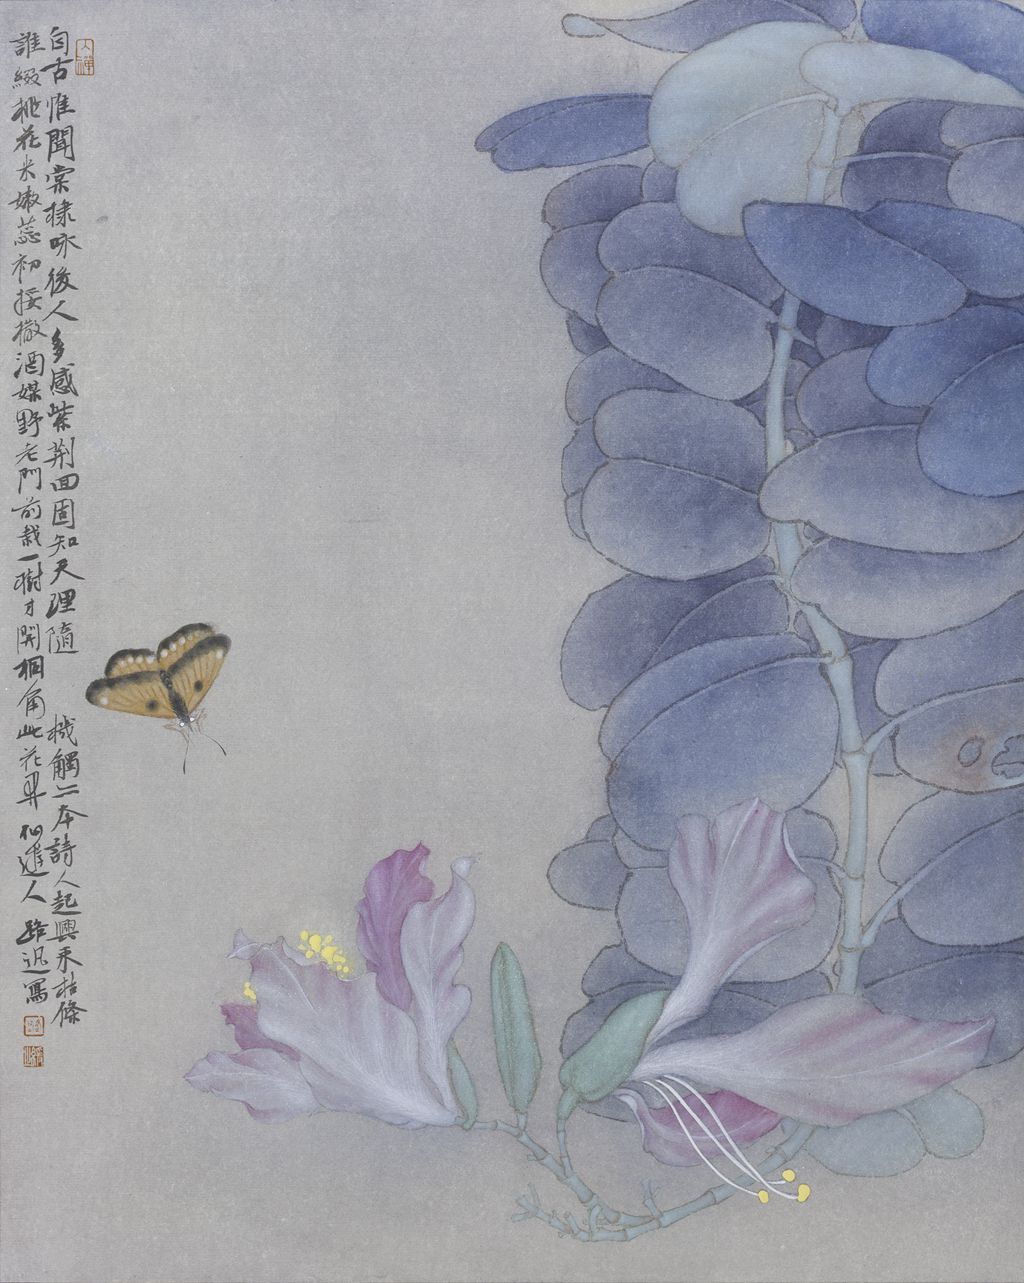 自古惟聞棠棣咏後人多感紫荊回固知天理隨機觸本詩人起興來枯條
誰綴桃花米嫩蕊初酒媒野老門前栽一樹才開桐角此花人路迅寫